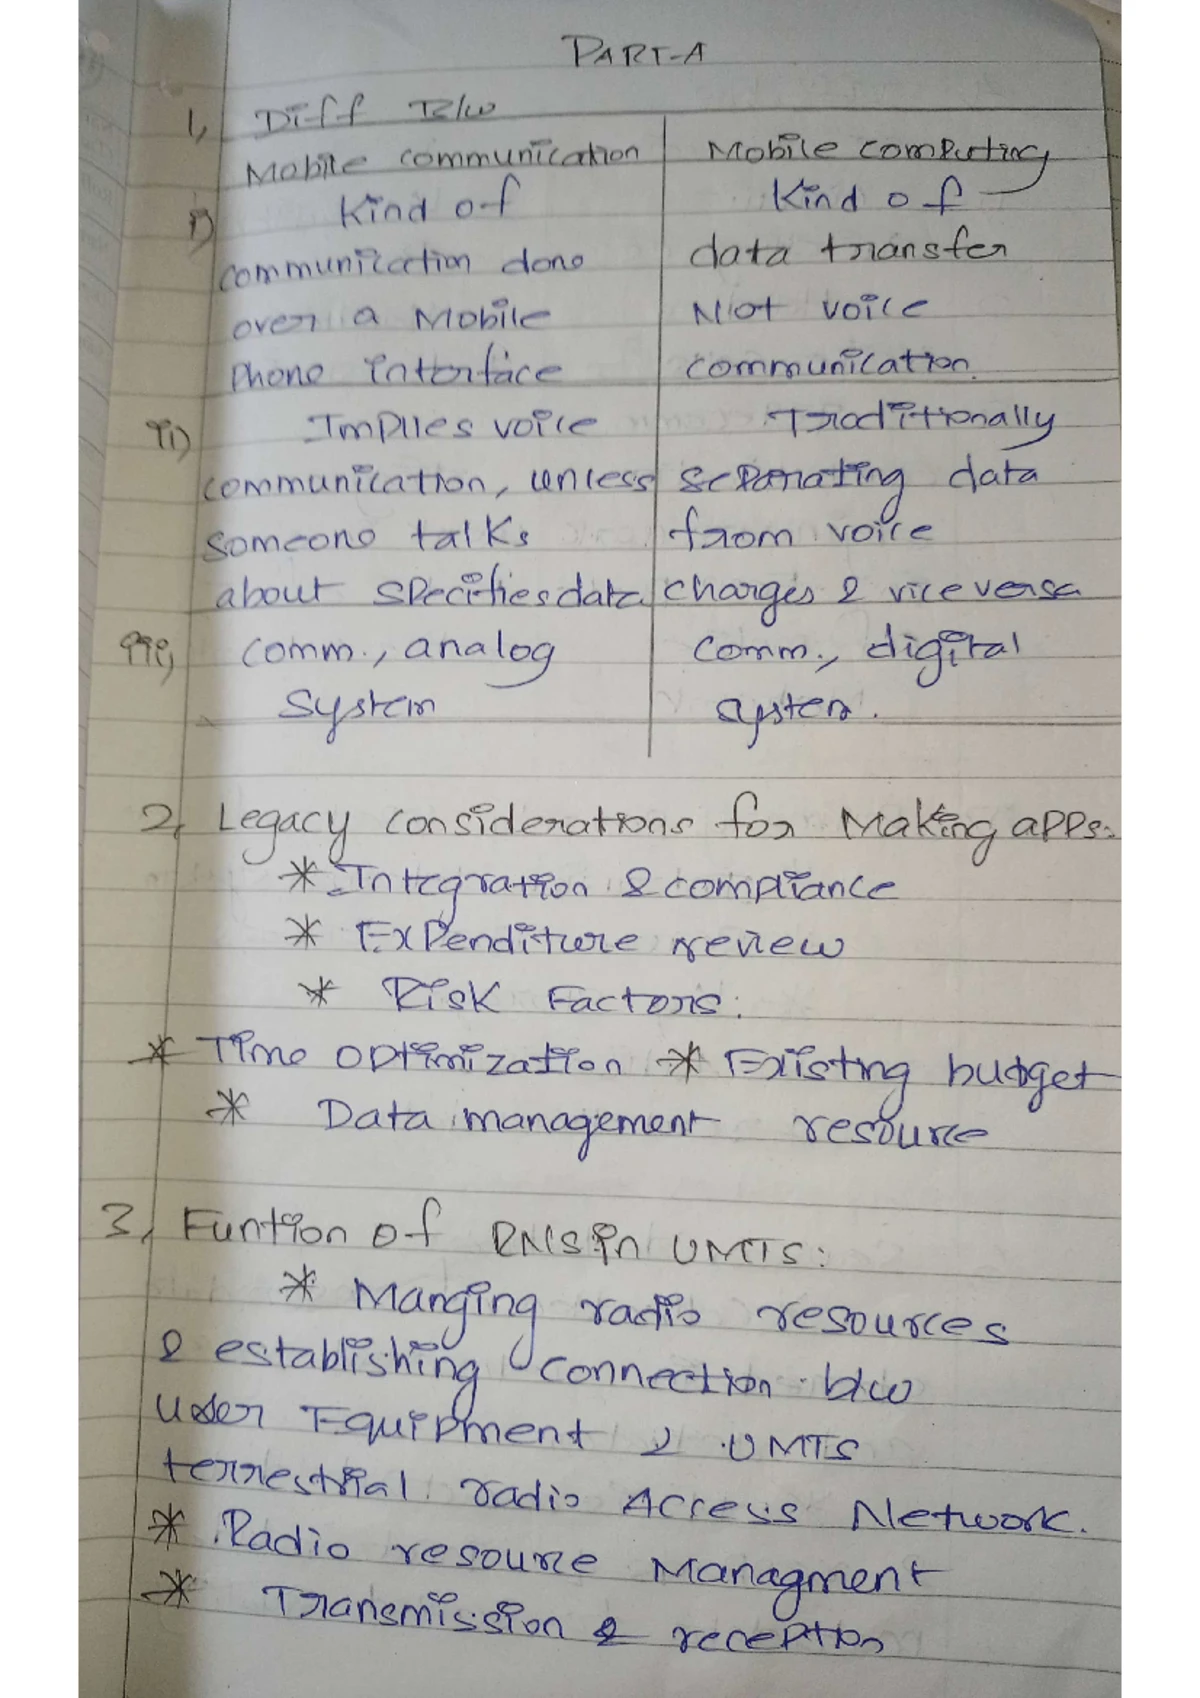 PART-A
1, Diff B/w
Mobile communication | Mobile computing
i) Kind of | Kind of
communication done | data transfer
over a Mobile | Not voice
Phone interface | communication.
ii) Implies voice | Traditionally
communication, unless | separating data
someone talks | from voice
about specifies data | charges & vice versa
iii) comm., analog | comm., digital
system | system.
2, Legacy considerations for Making apps:
* Integration & compliance
* Expenditure review
* Risk Factors:
* Time optimization * Existing budget
* Data management resource
3, Funtion of RNS in UMTS:
* Manging radio resources
& establishing connection b/w
user Equipment & UMTS
terrestrial radio Access Network.
* Radio resource Managment
* Transmission & reception